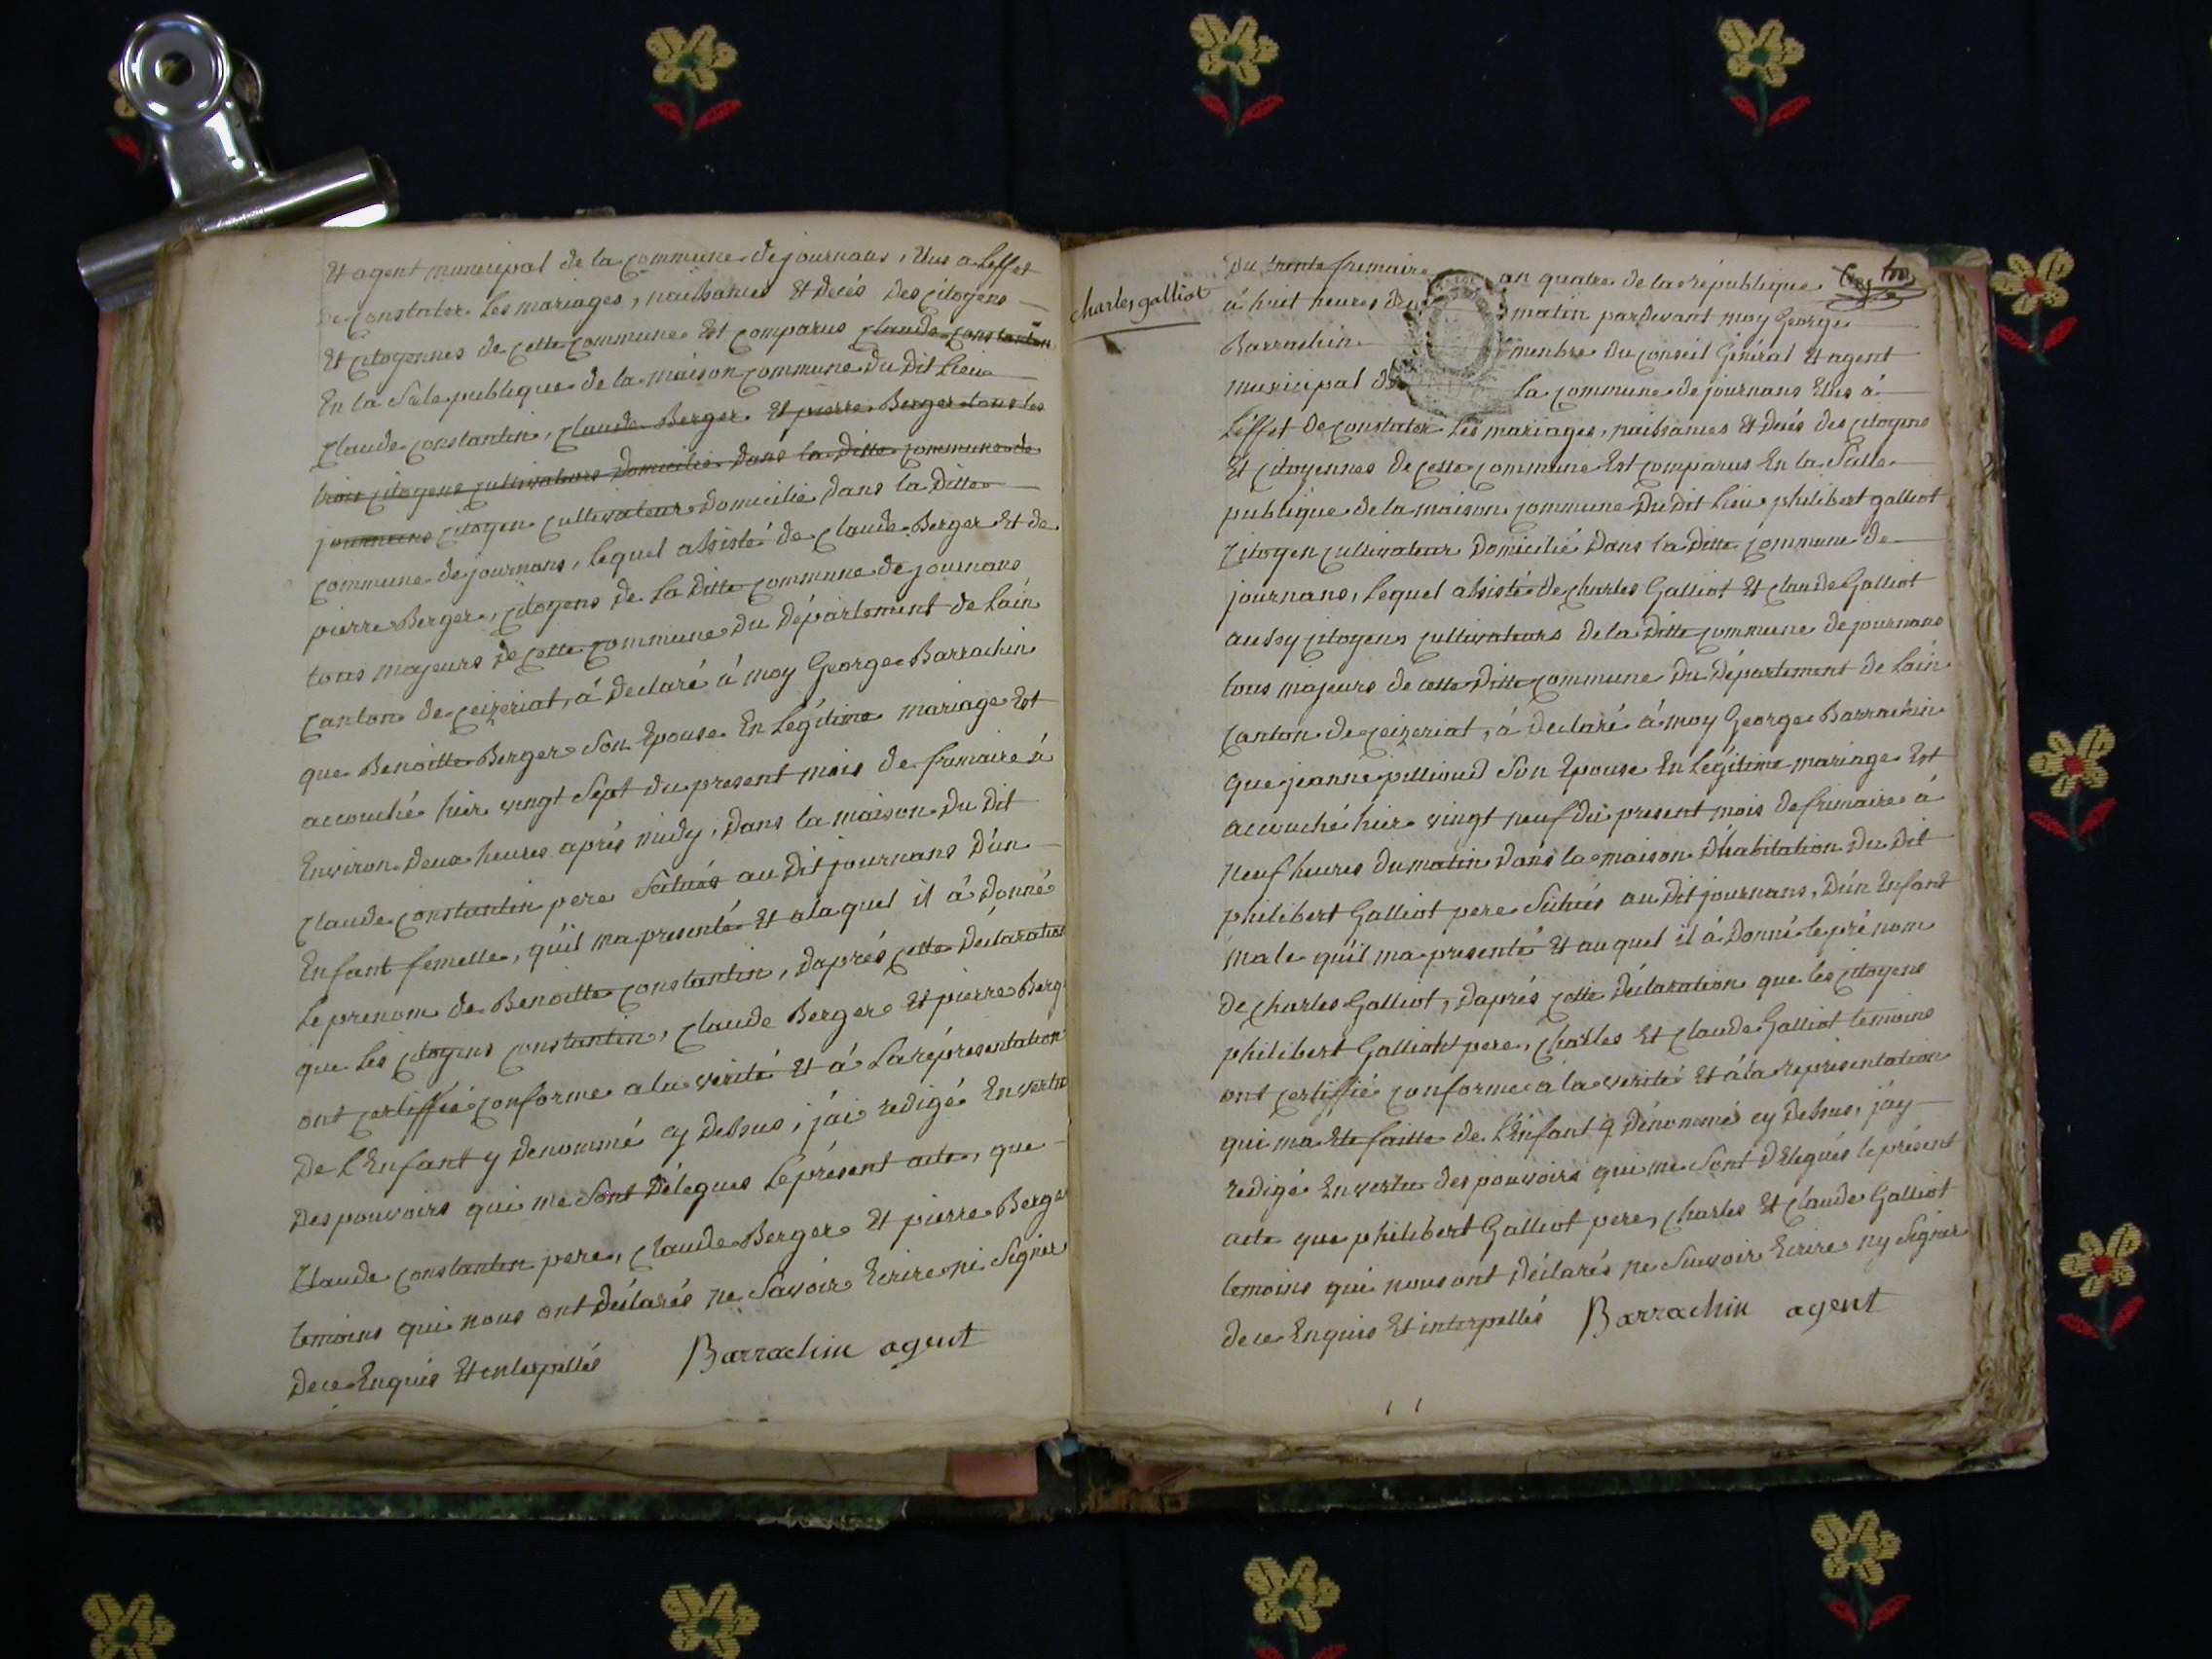 Et agent municipal de la commune de journans, Elus a Leffet
de constater Les mariages, naissances Et decés Des citoyens
Et citoyennes de cette commune Est comparus Claude Constantin
En la Sale publique de la maison commune Du Dit Lieu
Claude Constantin, Claude Berger Et pierre Berger tous les
trois citoyens cultivateurs Domicilié Dans la Ditte commune de
journans citoyen cultivateur Domicilié Dans la Ditte
commune de journans, Lequel assisté de Claude Berger Et de
pierre Berger, citoyens de La Ditte commune de journans
tous majeurs de cette commune du Département de Lain
canton de ceizeriat, á declaré á moy George Barrachin
que Benoitte Berger Son Epouse En Légitime mariage Est
accouché hier vingt Sept du present mois de frimaire á
Environ Deux heures aprés midy, Dans la maison Du Dit
Claude Constantin pere Scitués au Dit journans D'un
Enfant femelle, qu'il ma presenté Et a laquel il á Donné
Le prenom de Benoitte Constantin, D'aprés cette Déclaration
que Les citoyens Constantin, Claude Berger Et pierre Berg
ont certiffié conforme a la verité Et á La représentation
De L'Enfant y Denommé cy Dessus, j'ai redigé En vertu
Des pouvoirs qui me Sont Délegues Le présent acte, que
Claude Constantin pere, Claude Berger Et pierre Berger
temoins qui nous ont Déclarés ne Savoir Ecrire ni Signer
De ce Enquis Et enterpellés Barrachin agent
charles galliot
Du trente frimaire an quatre de la république
á huit heures du matin pardevant moy George
Barrachin menbre Du Conseil Général Et agent
municipal de la commune de journans Elus á
L'éffet De constater Les mariages, naissances Et Decés des citoyens
Et citoyennes de cette commune Est comparus En la Salle
publique de la maison commune Du Dit Lieu philibert galliot
Citoyen cultivateur Domicilié Dans la Ditte commune de
journans, Lequel assisté de charles Galliot Et Claude Galliot
aussy citoyens cultivateurs de la Ditte commune de journans
tous majeurs de cette Ditte commune Du Département de Lain
canton de ceizeriat, á declaré á moy George Barrachin
que jeanne pillioud Son Epouse En Légitime mariage Est
accouché hier vingt neuf du present mois de frimaire á
neuf heures du matin Dans la maison D'habitation Du Dit
philibert Galliot pere Scitués au Dit journans, D'un Enfant
male qu'il ma presenté Et au quel il á Donné le pré nom
de charles Galliot, D'aprés cette Déclaration que les citoyens
philibert Galliot pere, charles Et Claude Galliot temoins
ont certiffié conforme á la verité Et á la representation
qui ma Eté faitte de L'Enfant y Dénommé cy Dessus, j'ay
redigé En vertu des pouvoirs qui me Sont Délegués le présent
acte que philibert Galliot pere, charles Et Claude Galliot
temoins qui nous ont Déclarés ne Scavoir Ecrire ny Signer
de ce Enquis Et interpellés Barrachin agent